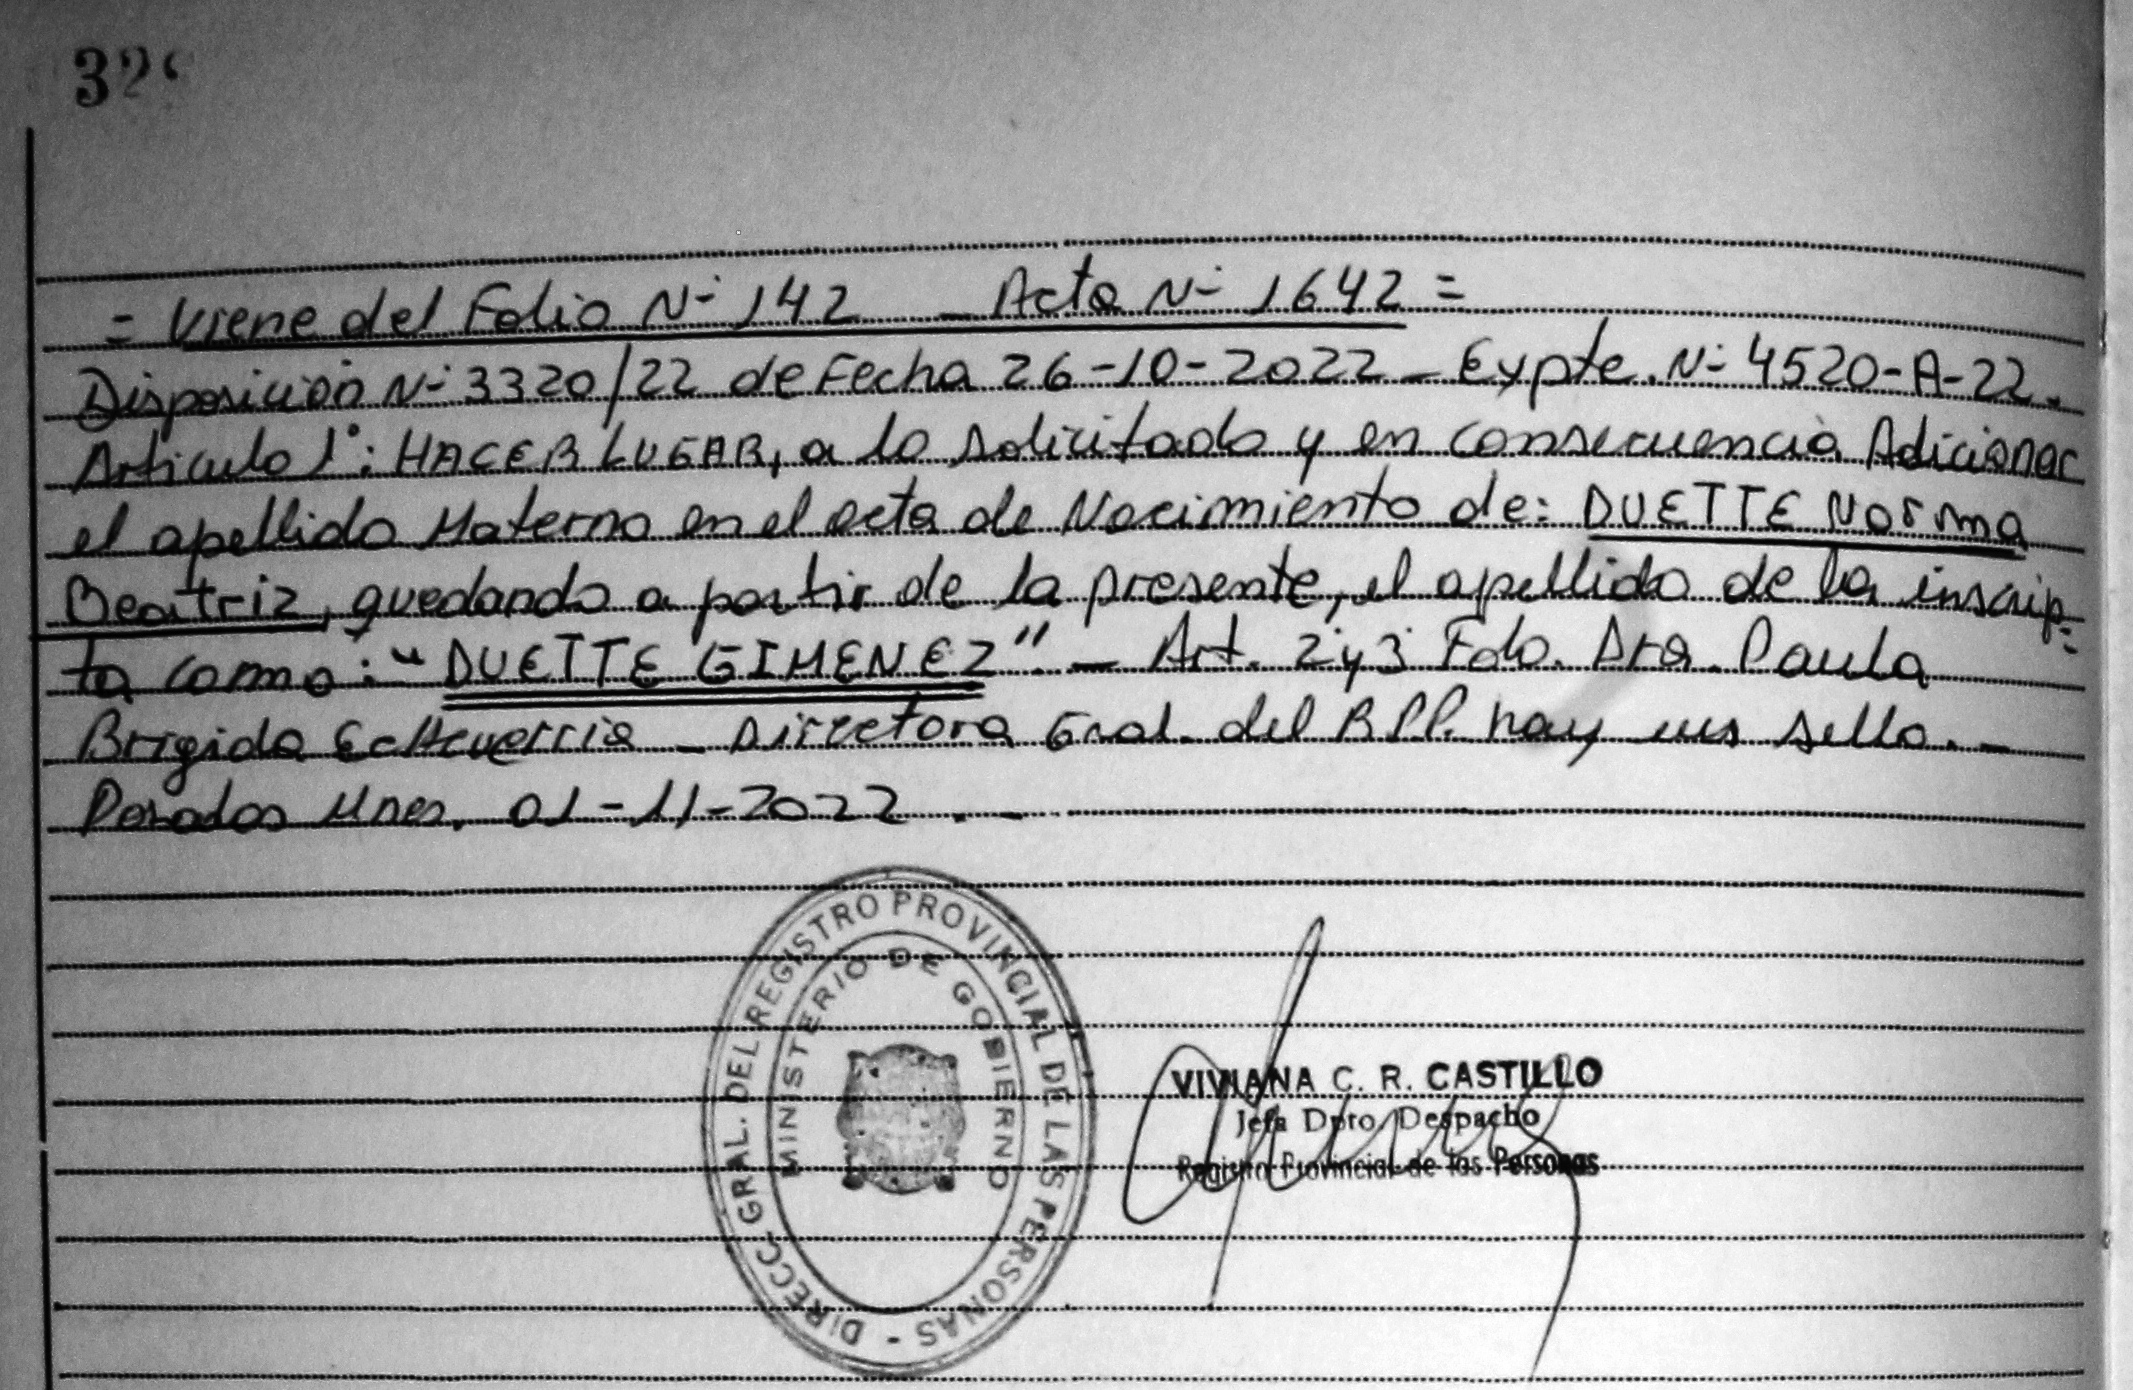 32
= Viene del Folio Nº 142 _ Acta Nº 1642 =
Disposición Nº 3320/22 de Fecha 26-10-2022 _ Expte. Nº 4520-A-22.
Articulo 1°: HACER LUGAR, a lo solicitado y en consecuencia Adicionar
el apellido Materno en el acta de Nacimiento de: DUETTE Norma
Beatriz, quedando a partir de la presente, el apellido de la inscrip-
ta como: "DUETTE GIMENEZ" _ Art. 2 y 3 Fdo. Dra. Paula
Brigida Echeverria _ Directora Gral. del RPP. hay un sello. _
Posadas Mnes. 01-11-2022 . _
DIRECC. GRAL. DEL REGISTRO PROVINCIAL DE LAS PERSONAS -
MINISTERIO DE GOBIERNO
VIVIANA C. R. CASTILLO
Jefa Dpto. Despacho
Registro Provincial de las Personas